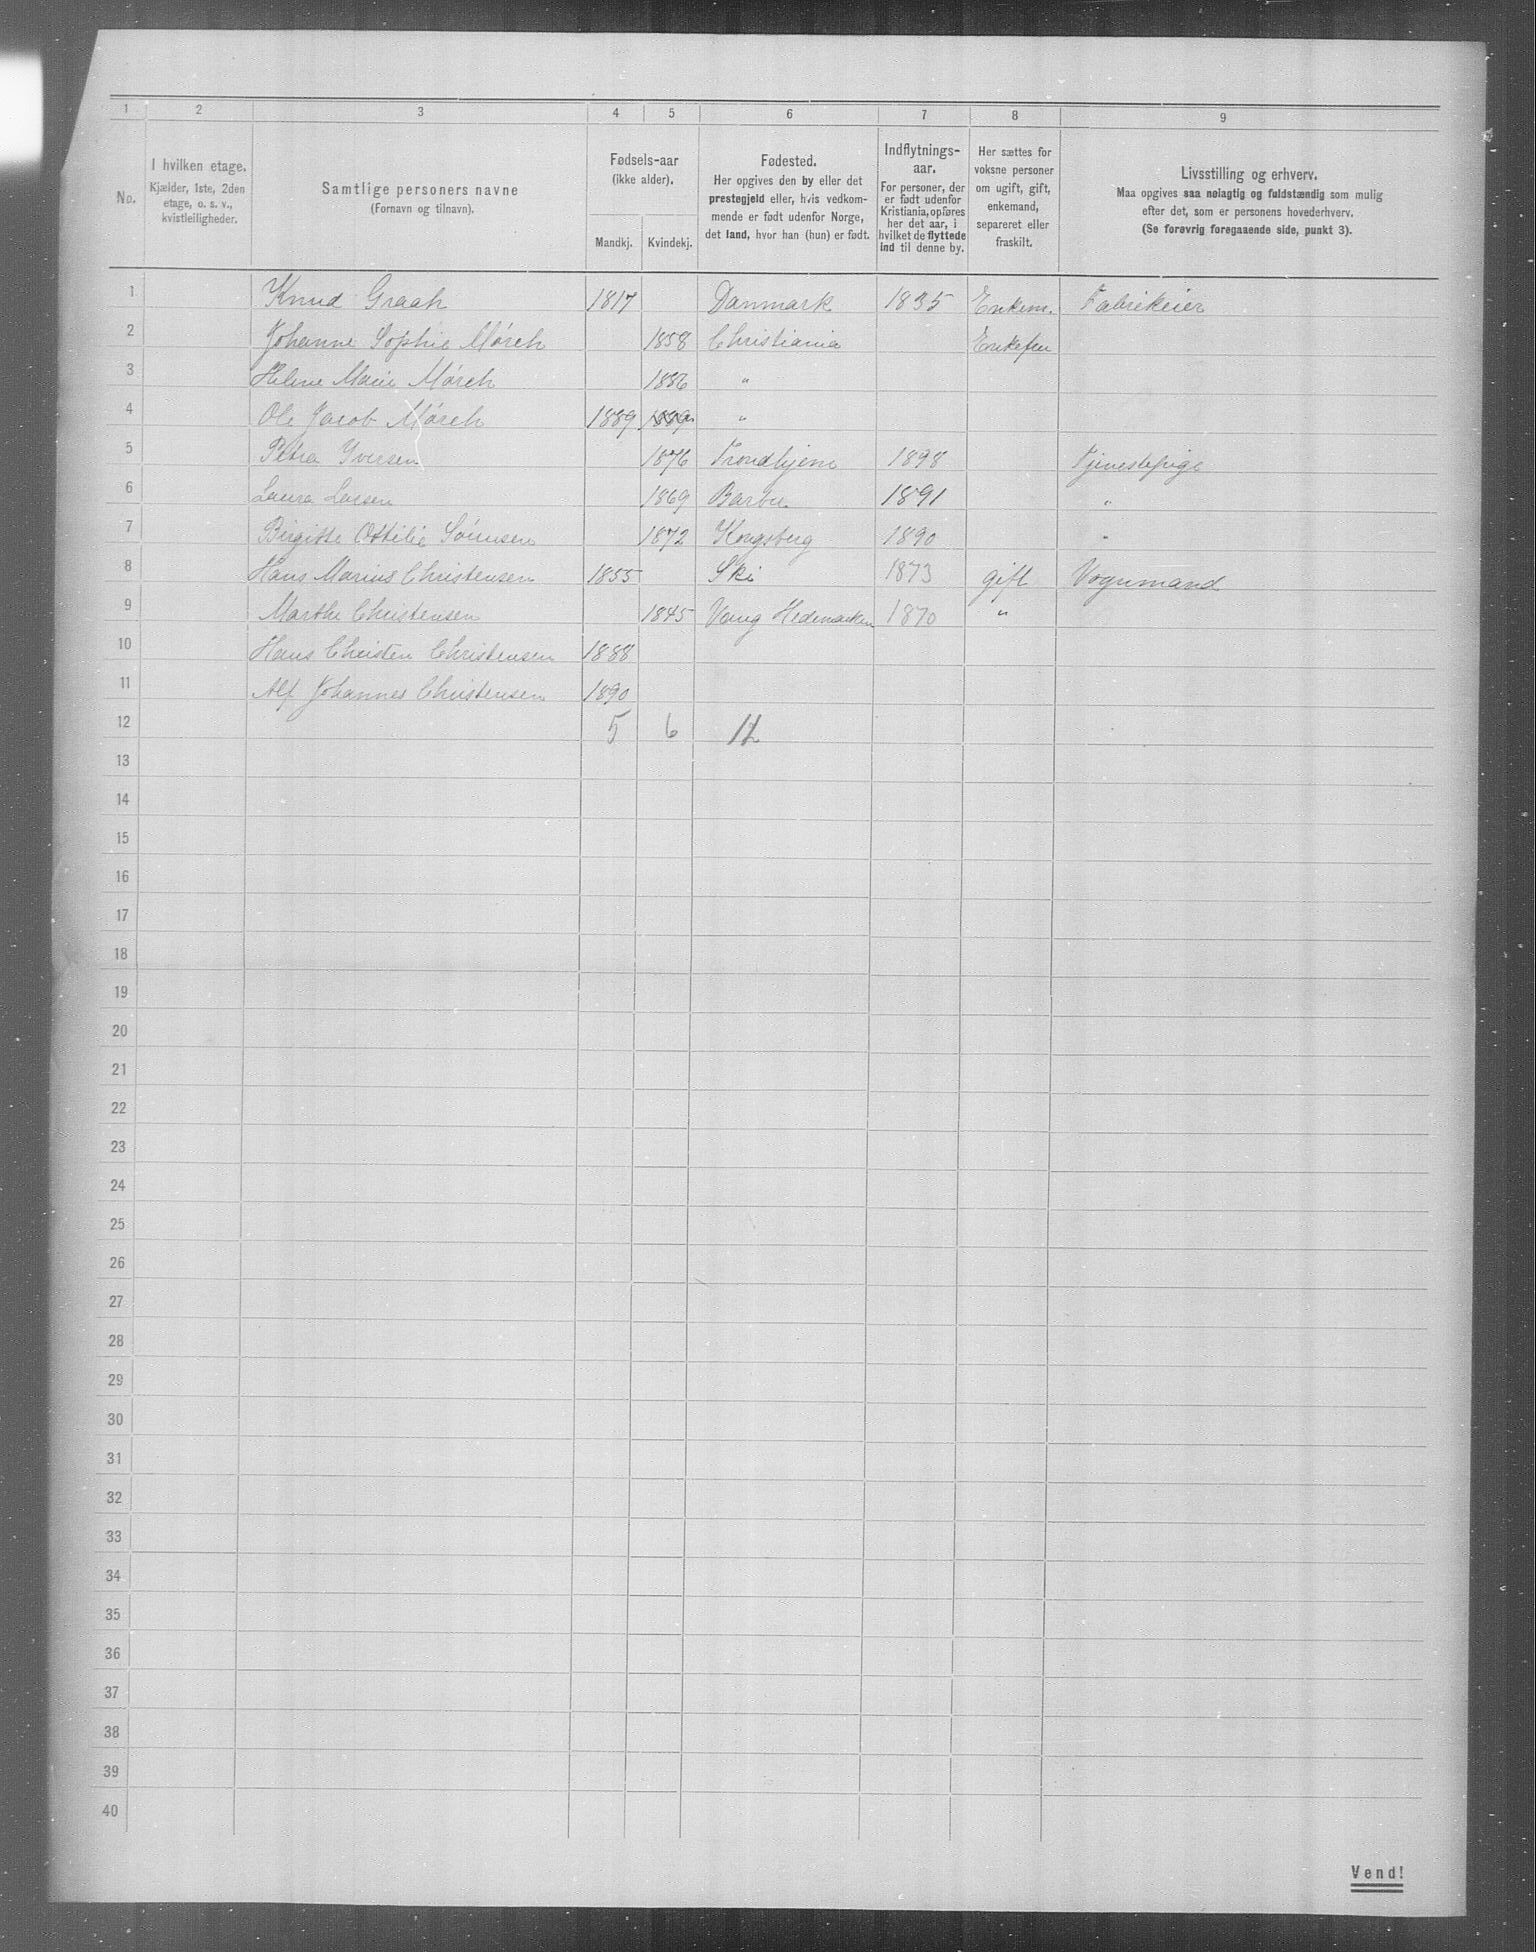 1 2 3 4 5 6 7 8 9
No.
I hvilken etage.
Kjælder, 1ste, 2den
etage, o. s. v.,
kvistleiligheder.
Samtlige personers navne
(Fornavn og tilnavn).
Fødsels-aar
(ikke alder).
Mandkj. Kvindekj.
Fødested.
Her opgives den by eller det
prestegjeld eller, hvis vedkom-
mende er født udenfor Norge,
det land, hvor han (hun) er født.
Indflytnings-
aar.
For personer, der
er født udenfor
Kristiania, opføres
her det aar, i
hvilket de flyttede
ind til denne by.
Her sættes for
voksne personer
om ugift, gift,
enkemand,
separeret eller
fraskilt.
Livsstilling og erhverv.
Maa opgives saa nølagtig og fuldstændig som mulig
efter det, som er personens hovederhverv.
(Se forøvrig foregaaende side, punkt 3).
1 Knud Graah 1817 Danmark 1835 Enkem. Fabrikeier
2 Johanne Sophie Mørch 1858 Christiania Enkefru
3 Helene Marie Mørch 1886 "
4 Ole Jacob Mørch 1889 1889 "
5 Petra Iversen 1876 Trondhjem 1898 Tjenestepige
6 Laura Larsen 1869 Barbu 1891 "
7 Birgitte Ottilie Sörensen 1872 Kongsberg 1890 "
8 Hans Marius Christensen 1855 Ski 1873 gift Vognmand
9 Marthe Christensen 1845 Vang Hedemarken 1870 "
10 Hans Christen Christensen 1888
11 Alf Johannes Christensen 1890
12 5 6 11
13
14
15
16
17
18
19
20
21
22
23
24
25
26
27
28
29
30
31
32
33
34
35
36
37
38
39
40
Vend!